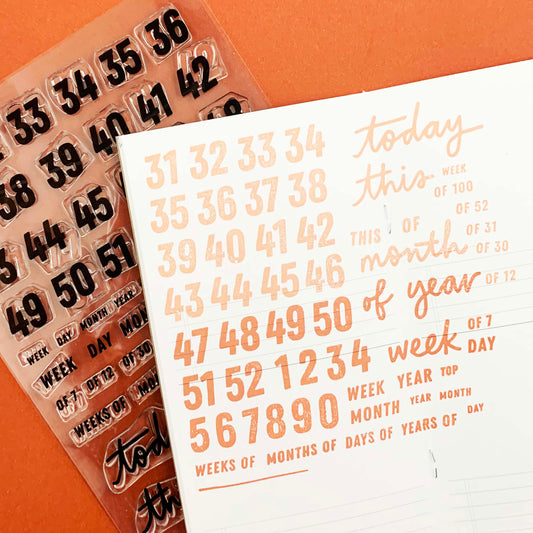 33 34 35 36
39 40 41 42
38
44 45
49 50 51
WEEK DAY MONTH YEAR
WEEK DAY
OF 7 OF 12 OF 30
WEEKS OF
today
this
31 32 33 34 today
35 36 37 38 this WEEK
OF 100
39 40 41 42 THIS OF OF 52
43 44 45 46 month OF 31
OF 30
47 48 49 50 of year OF 12
51 52 1 2 3 4 week OF 7
DAY
567890 WEEK YEAR TOP
MONTH YEAR MONTH
WEEKS OF MONTHS OF DAYS OF YEARS OF DAY